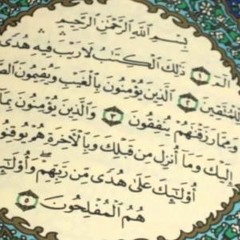 بِسْمِ اللَّهِ الرَّحْمَٰنِ الرَّحِيمِ
الٓمٓ ١ ذَٰلِكَ الْكِتَابُ لَا رَيْبَ فِيهِ هُدًى
لِلْمُتَّقِينَ ٢ الَّذِينَ يُؤْمِنُونَ بِالْغَيْبِ وَيُقِيمُونَ
وَمِمَّا رَزَقْنَاهُمْ يُنْفِقُونَ ٣ وَالَّذِينَ يُؤْمِنُونَ بِمَا
إِلَيْكَ وَمَا أُنْزِلَ مِنْ قَبْلِكَ وَبِالْآخِرَةِ هُمْ يُوقِنُونَ
أُولَٰئِكَ عَلَىٰ هُدًى مِنْ رَبِّهِمْ وَأُولَٰئِكَ
هُمُ الْمُفْلِحُونَ ٥